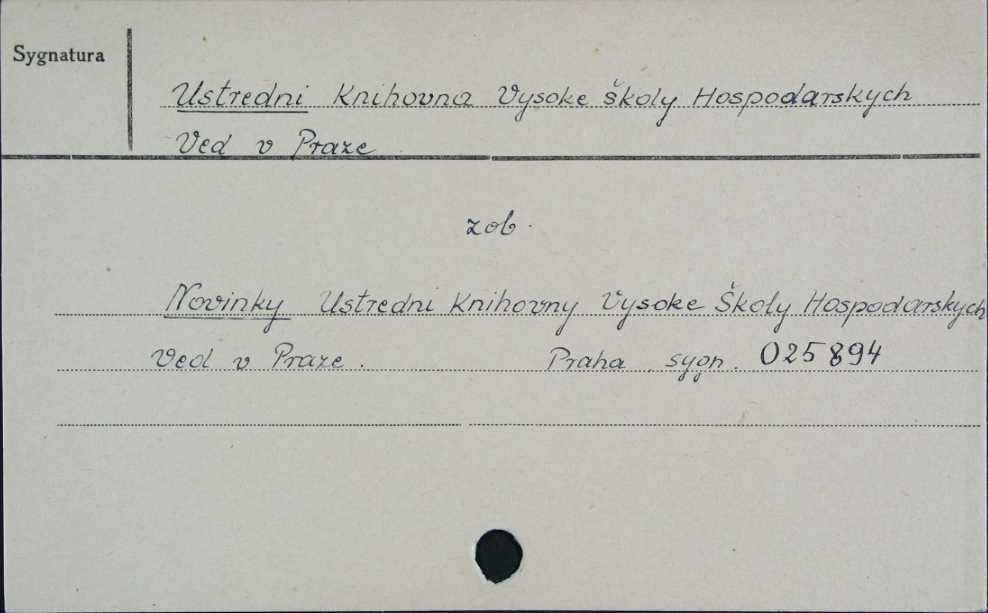 Sygnatura
Ustredni Knihovna Vysoke školy Hospodarskych
Ved v Praze
zob.
Novinky Ustredni Knihovny Vysoke Školy Hospodarskych
Ved v Praze. Praha sygn. 025894